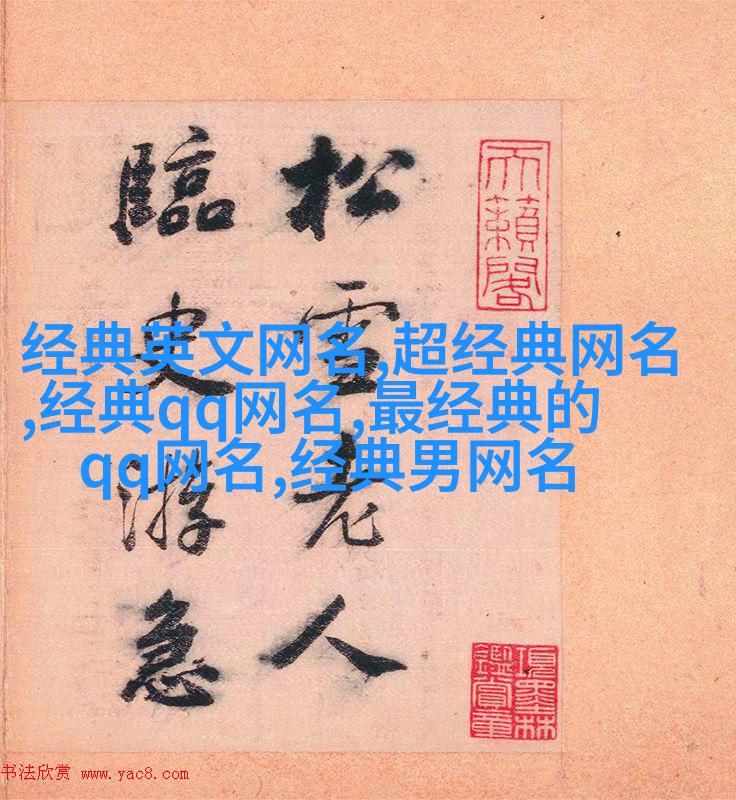 松雪老人
臨史游急
天籟閣
項墨林
鑑賞章
经典英文网名,超经典网名
,经典qq网名,最经典的
qq网名,经典男网名
书法欣赏 www.yac8.com